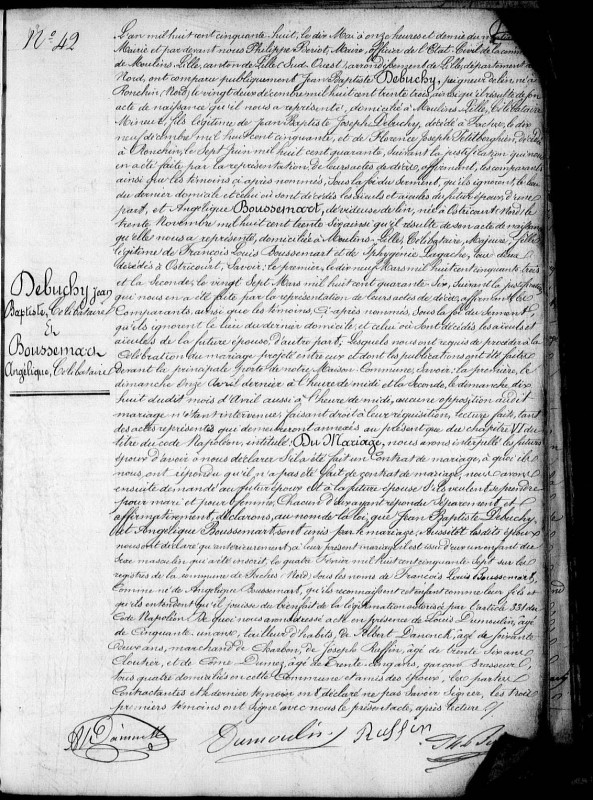 N.º 42
Debuchy Jean
Baptiste, Célibataire
Et
Boussemart
Angélique, Célibataire
L'an mil huit cent cinquante-huit, le dix Mai à onze heures et demie du
Mairie et par devant nous Philippe Maire, officier de l'Etat-Civil de la
de Moulins-Lille, canton de Lille (Sud-Ouest), arrondissement de Lille, département du
Nord, ont comparu publiquement Jean Baptiste Debuchy, peigneur de lin, né à
Ronchin (Nord) le vingt deux décembre mil huit cent trente trois, ainsi qu'il résulte de son
acte de naissance qu'il nous a représenté, domicilié à Moulins-Lille, Célibataire
fils légitime de Jean Baptiste Joseph Debuchy, décédé à Faches, le dix
neuf décembre mil huit cent cinquante, et de Florence Joseph
à Ronchin, le Sept juin mil huit cent quarante, suivant la justification qui nous
en a été faite par la représentation de leurs actes de décès, affirmant, les comparants
ainsi que les témoins ci-après nommés, sous la foi du Serment, qu'ils ignorent le lieu
du dernier domicile et celui où sont décédés les aïeuls et aïeules du futur époux, d'une
part, et Angélique Boussemart, dévideuse de lin, née à Ostricourt (Nord) le
trente Novembre mil huit cent trente Six ainsi qu'il résulte de son acte de naissance
qu'elle nous a représenté, domiciliée à Moulins-Lille, Célibataire, Majeure, fille
légitime de François Louis Boussemart et de Iphygénie tous deux
décédés à Ostricourt, Savoir: le premier, le dix neuf Mars mil huit cent cinquante trois
et la Seconde, le vingt Sept Mars mil huit cent quarante-Six, Suivant la justification
qui nous en a été faite par la représentation de leurs actes de décès, affirmant les
Comparants, ainsi que les témoins, Ci-après nommés, Sous la foi du Serment,
qu'ils ignorent le lieu du dernier domicile, et celui où Sont décédés les aïeuls et
aïeules de la future épouse, d'autre part, Lesquels nous ont requis de procéder à la
Célébration du mariage projeté entre eux et dont les publications ont été faites
devant la principale Porte de notre Maison Commune, Savoir: la première, le
dimanche Onze Avril dernier à l'heure de midi et la Seconde, le dimanche dix
huit dudit mois d'Avril aussi à l'heure de midi, aucune opposition audit
mariage n'étant intervenue, faisant droit à leur réquisition, lecture faite, tant
des actes représentés qui demeureront annexés au présent que du chapitre VI du
titre du code Napoléon, intitulé: Du Mariage, nous avons interpellé les futurs
époux d'avoir à nous déclarer S'il a été fait un Contrat de mariage, à quoi ils
nous ont répondu qu'il n'a pas été fait de contrat de mariage, nous avons
ensuite demandé au futur époux et à la future épouse S'ils veulent se prendre
pour mari et pour femme, Chacun d'eux ayant répondu Séparément et
affirmativement, déclarons, au nom de la loi, que Jean Baptiste Debuchy,
et Angélique Boussemart, sont unis par le mariage; Aussitôt lesdits époux
nous ont déclaré qu'antérieurement à leur présent mariage, il est issu d'eux un enfant du
Sexe masculin qui a été inscrit, le quatre Février mil huit cent cinquante Sept sur les
registres de la commune de Faches (Nord) Sous les noms de François Louis Boussemart,
Comme né de Angélique Boussemart, qu'ils reconnaissent cet enfant comme leur fils et
qu'ils entendent qu'il jouisse du bienfait de la légitimation autorisée par l'article 331 du
Code Napoléon. De quoi nous avons dressé acte en présence de Louis Dumoulin, âgé
de Cinquante-un ans, tailleur d'habits, de Albert âgé de Soixante
deux ans, marchand de Charbon, de Joseph Ruffin, âgé de trente Six ans
Cloutier, et de Côme Dumez, âgé de trente Cinq ans, garçon brasseur,
tous quatre domiciliés en cette Commune et amis des époux, les parties
Contractantes et le dernier témoin ont déclaré ne pas Savoir Signer, les trois
premiers témoins ont Signé avec nous le présent acte, après lecture
Dumoulin Ruffin